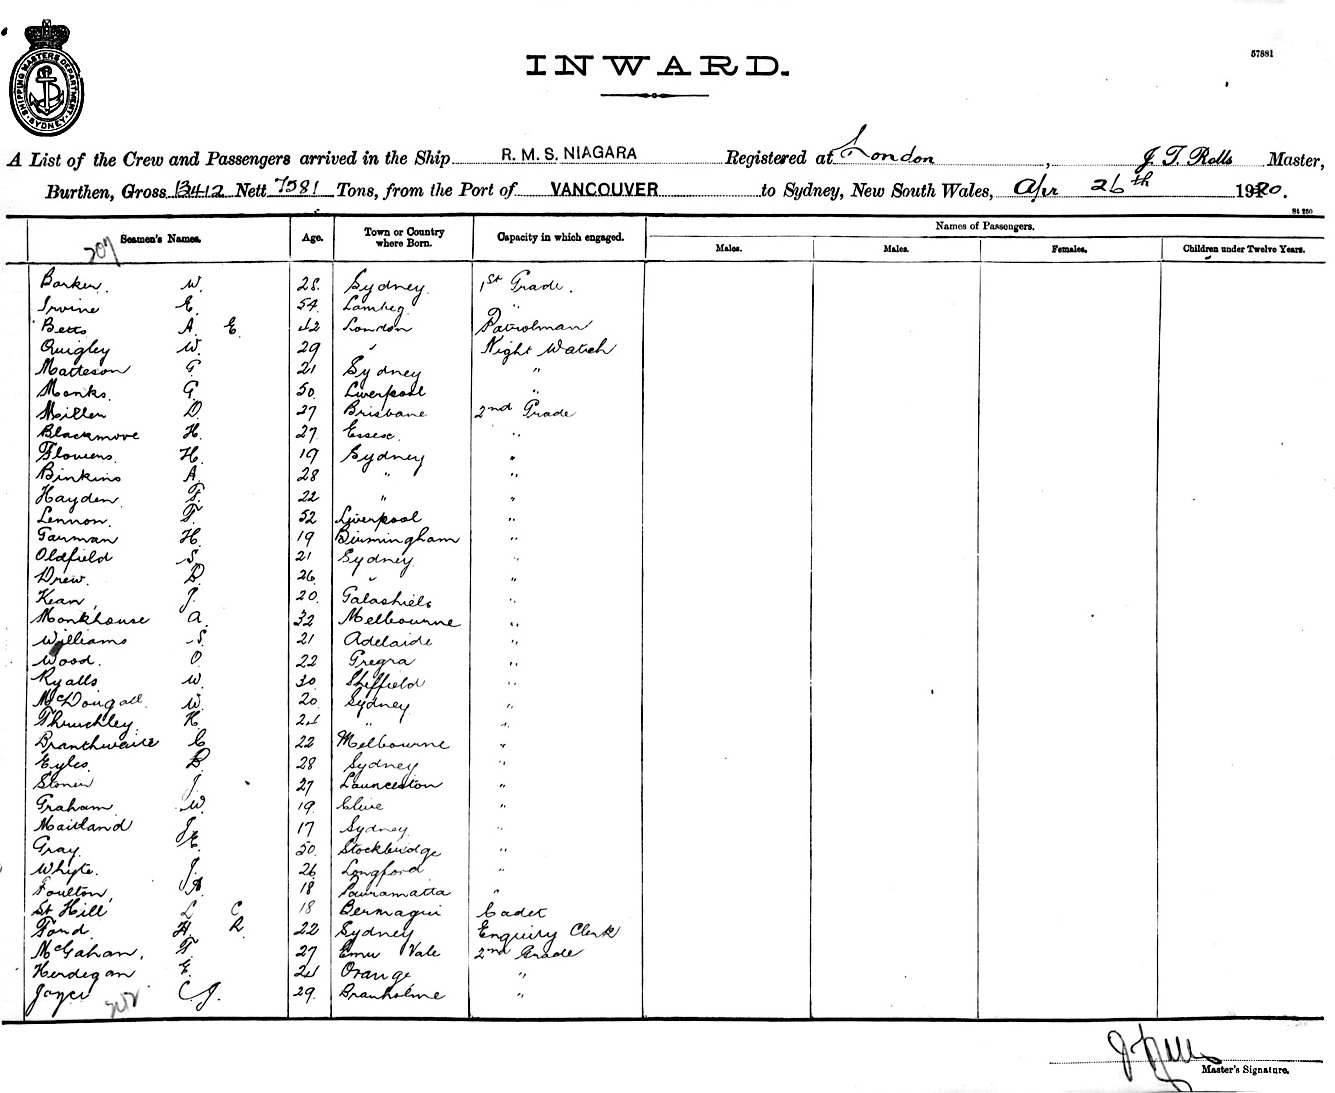 SHIPPING MASTERS DEPARTMENT SYDNEY
INWARD.
57881
A List of the Crew and Passengers arrived in the Ship R. M. S. NIAGARA Registered at London, J. T. Rolls Master,
Burthen, Gross 13412 Nett 7581 Tons, from the Port of VANCOUVER to Sydney, New South Wales, Apr 26th 1920.
St 250
Seamen's Names. Age. Town or Country where Born. Capacity in which engaged. Names of Passengers.
Males. Males. Females. Children under Twelve Years.
207
Barker. W. 28. Sydney. 1st Grade.
Irvine E. 54. Lambeg. "
Betts A. E. 42 London Patrolman
Quigley W. 29 " Night Watch
Matteson G. 21 Sydney "
Monks. G. 50. Liverpool "
Miller D. 27 Brisbane 2nd Grade
Blackmore H. 27. Essex. "
Flowers. H. 19 Sydney "
Binkins A. 28 " "
Hayden. F. 22 " "
Lennon. F. 52 Liverpool "
Garman H. 19 Birmingham "
Oldfield S. 21 Sydney "
Drew. B. 26. " "
Kean, J. 20. Galashiels "
Monkhouse A. 32 Melbourne "
Williams S. 21 Adelaide "
Wood. O. 22 "
Ryalls W. 30 Sheffield "
McDougall W. 20 Sydney "
K. 24 " "
Branthwaite C. 22 Melbourne "
Eyles. B. 28 Sydney "
J. 27 Launceston "
Graham W. 19. Clive "
Maitland J. 17 Sydney. "
Gray. E. 50. Stockbridge "
Whyte. J. 26 Longford "
Foulton, A. 18 Parramatta "
St Hill L C 18 Bermagui Cadet
Ford. H. R. 22 Sydney Enquiry Clerk
McGahan, F. 27 Emu Vale 2nd Grade
Herdegan E. 24 Orange "
Joyce C J. 29. Branxholme "
208
J Rolls
Master's Signature.